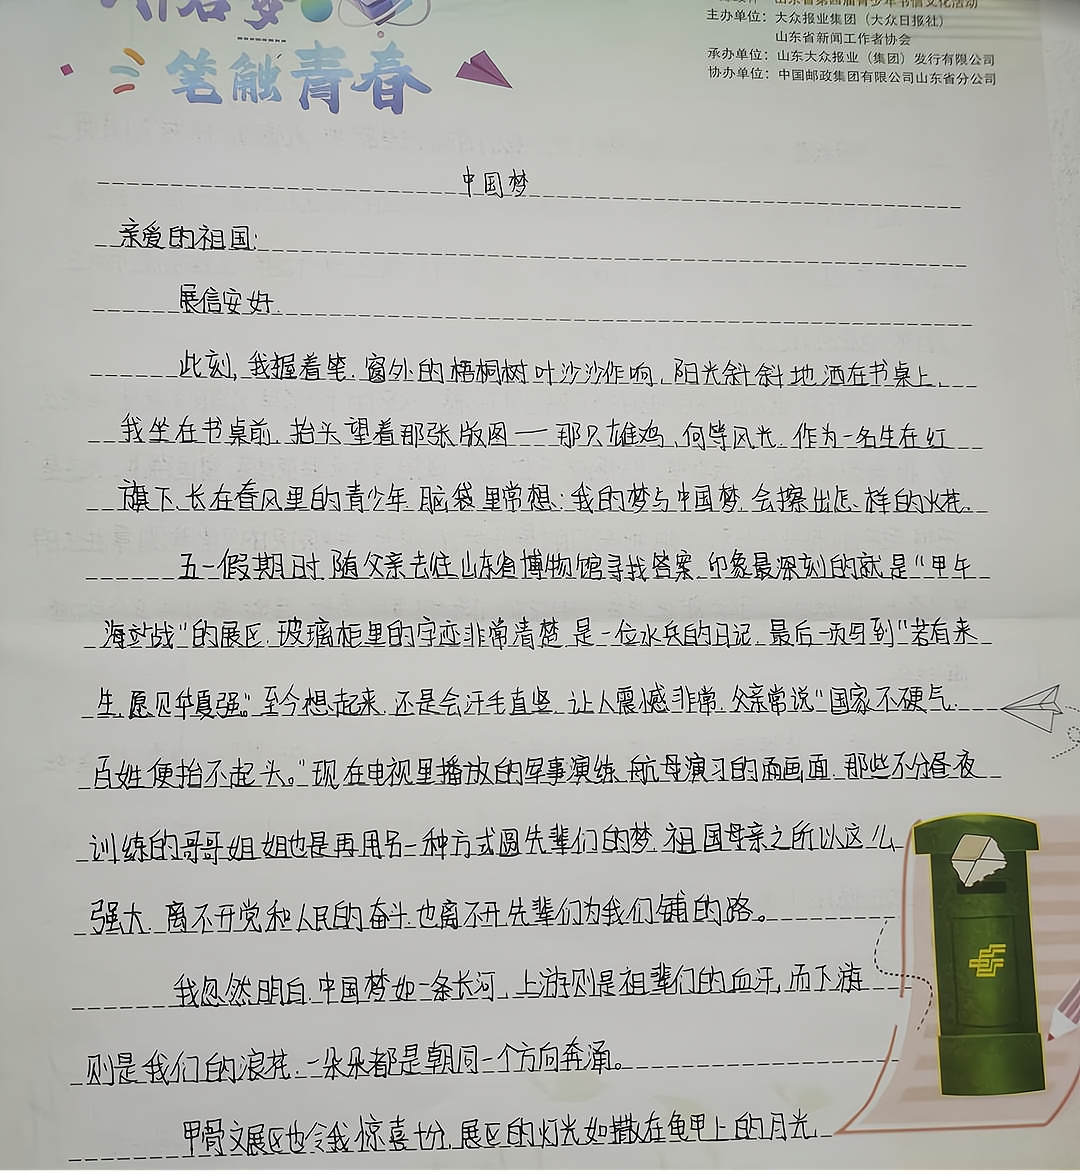 笔触青春
山东省第四届青少年书信文化活动
主办单位：大众报业集团（大众日报社）
山东省新闻工作者协会
承办单位：山东大众报业（集团）发行有限公司
协办单位：中国邮政集团有限公司山东省分公司
中国梦
亲爱的祖国：
展信安好.
此刻，我握着笔.窗外的梧桐树叶沙沙作响，阳光斜斜地洒在书桌上，
我坐在书桌前.抬头望着那张版图——那只雄鸡,何等风光.作为一名生在红
旗下、长在春风里的青少年.脑袋里常想：我的梦与中国梦.会擦出怎样的火花.
五一假期日时.随父亲去往山东省博物馆寻找答案.印象最深刻的就是“甲午
海战战”的展区.玻璃柜里的字迹非常清楚.是一位水兵的日记.最后一页写到“若有来
生,愿见华夏强。”至今想起来.还是会汗毛直竖.让人震撼非常.父亲常说“国家不硬气.
百姓便抬不起头。”现在电视里播放的军事演练.航母演习的画面.那些不分昼夜
训练的哥哥姐姐也是再用另一种方式圆先辈们的梦.祖国母亲之所以这么
强大.离不开党和人民的奋斗.也离不开先辈们为我们铺的路。
我忽然明白.中国梦如一条长河，上游则是祖辈们的血汗,而下游
则是我们的浪花.一朵朵都是朝同一个方向奔涌。
甲骨文展区也令我惊喜十分.展区的灯光如撒在龟甲上的月光.